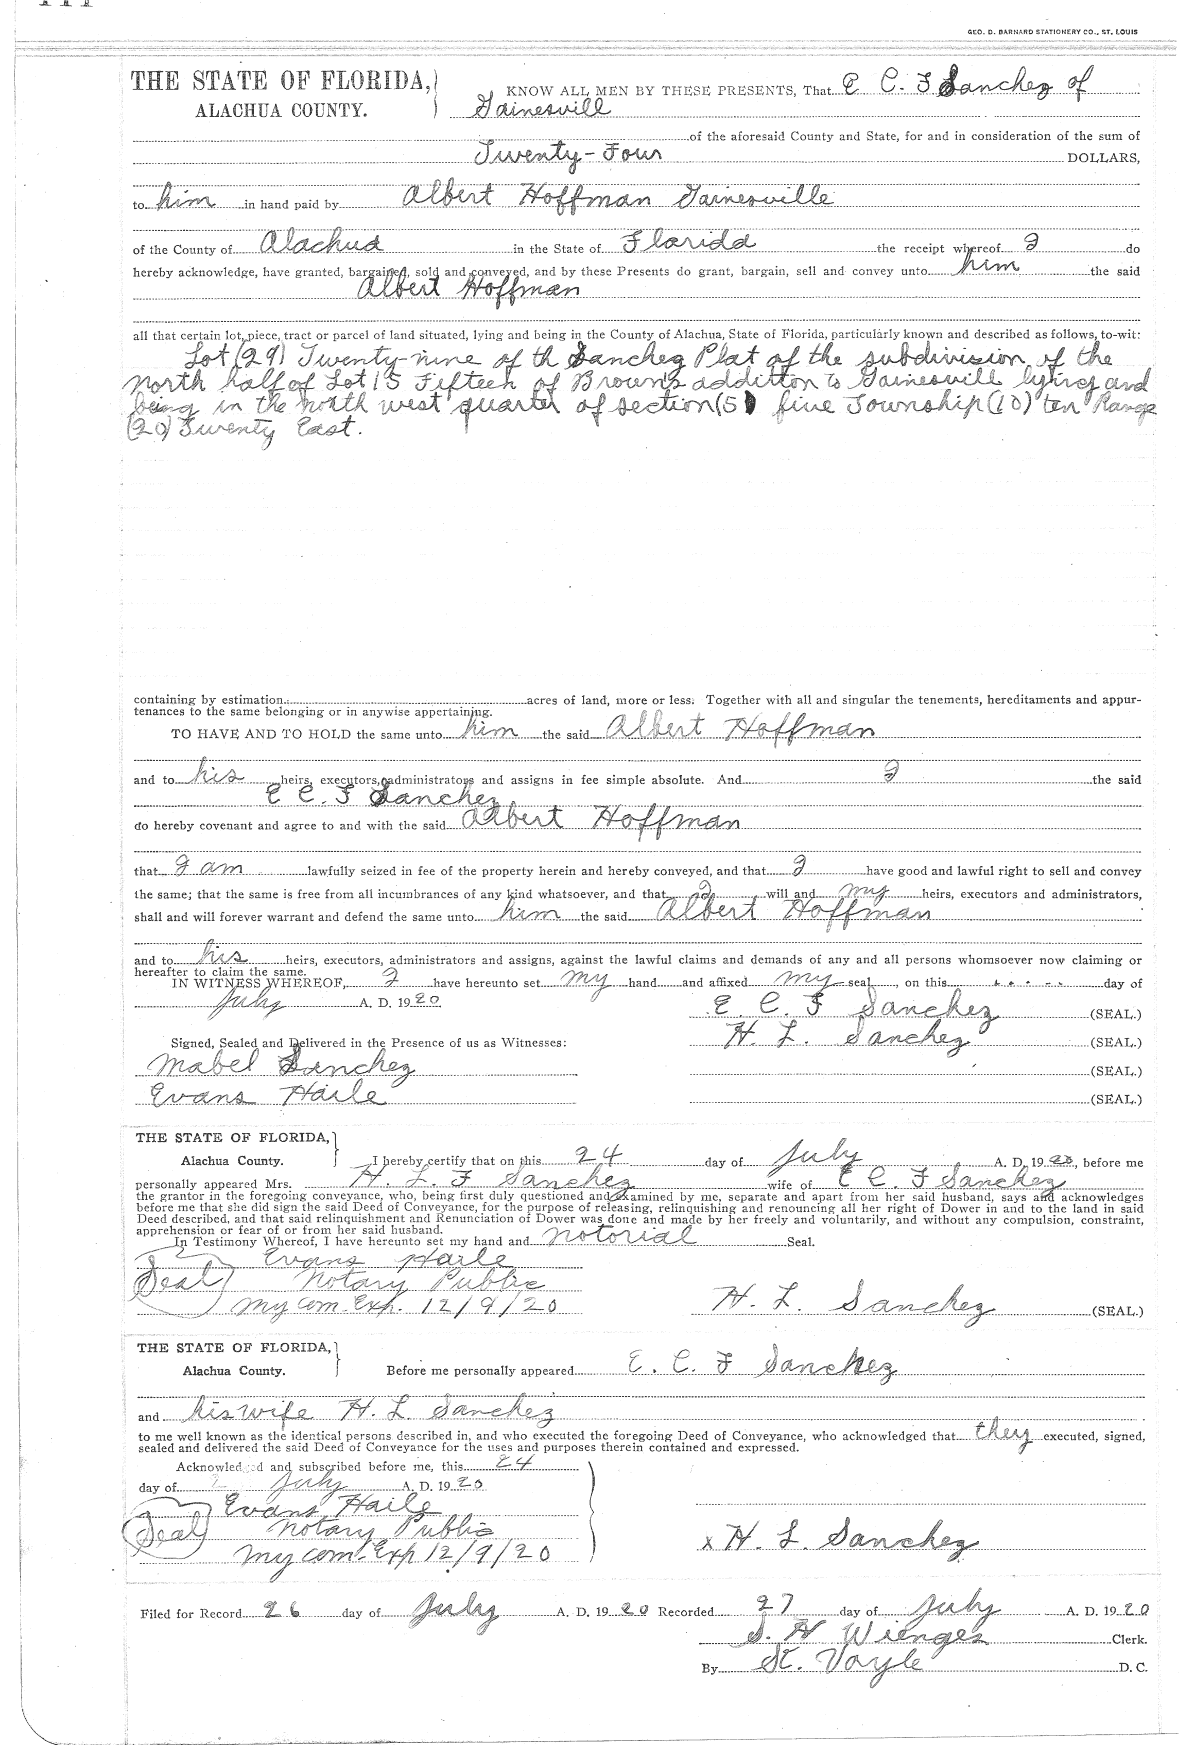 GEO. D. BARNARD STATIONERY CO., ST. LOUIS
THE STATE OF FLORIDA,
ALACHUA COUNTY.
KNOW ALL MEN BY THESE PRESENTS, That E C. F Sanchez of
Gainesvill
of the aforesaid County and State, for and in consideration of the sum of
Twenty-Four DOLLARS,
to him in hand paid by Albert Hoffman Gainesville
of the County of Alachua in the State of Florida the receipt whereof I do
hereby acknowledge, have granted, bargained, sold and conveyed, and by these Presents do grant, bargain, sell and convey unto him the said
Albert Hoffman
all that certain lot, piece, tract or parcel of land situated, lying and being in the County of Alachua, State of Florida, particularly known and described as follows, to-wit:
Lot (29) Twenty-nine of th Sanchez Plat of the subdivision of the
North half of Lot 15 Fifteen of Brown's addition to Gainesvill lying and
being in the north west quarter of section (5) five Township (10) ten Range
(20) Twenty East.
containing by estimation acres of land, more or less. Together with all and singular the tenements, hereditaments and appur-
tenances to the same belonging or in anywise appertaining.
TO HAVE AND TO HOLD the same unto him the said Albert Hoffman
and to his heirs, executors, administrators and assigns in fee simple absolute. And I the said
E C. F Sanchez
do hereby covenant and agree to and with the said Albert Hoffman
that I am lawfully seized in fee of the property herein and hereby conveyed, and that I have good and lawful right to sell and convey
the same; that the same is free from all incumbrances of any kind whatsoever, and that I will and my heirs, executors and administrators,
shall and will forever warrant and defend the same unto him the said Albert Hoffman
and to his heirs, executors, administrators and assigns, against the lawful claims and demands of any and all persons whomsoever now claiming or
hereafter to claim the same.
IN WITNESS WHEREOF, I have hereunto set my hand and affixed my seal, on this day of
July A. D. 1920
E. C. F Sanchez (SEAL.)
H. L. Sanchez (SEAL.)
Signed, Sealed and Delivered in the Presence of us as Witnesses:
Mabel Sanchez (SEAL.)
Evans Haile (SEAL.)
THE STATE OF FLORIDA,
Alachua County. I hereby certify that on this 24 day of July A. D. 1920, before me
personally appeared Mrs. H. L. F Sanchez wife of E C. F Sanchez
the grantor in the foregoing conveyance, who, being first duly questioned and examined by me, separate and apart from her said husband, says and acknowledges
before me that she did sign the said Deed of Conveyance, for the purpose of releasing, relinquishing and renouncing all her right of Dower in and to the land in said
Deed described, and that said relinquishment and Renunciation of Dower was done and made by her freely and voluntarily, and without any compulsion, constraint,
apprehension or fear of or from her said husband.
In Testimony Whereof, I have hereunto set my hand and notorial Seal.
Evans Haile
Seal Notary Public
My Com. Exp. 12/9/20 H. L. Sanchez (SEAL.)
THE STATE OF FLORIDA,
Alachua County. Before me personally appeared E. C. F Sanchez
and his wife H. L. Sanchez
to me well known as the identical persons described in, and who executed the foregoing Deed of Conveyance, who acknowledged that they executed, signed,
sealed and delivered the said Deed of Conveyance for the uses and purposes therein contained and expressed.
Acknowledged and subscribed before me, this 24
day of July A. D. 1920
Evans Haile
Seal Notary Public
My Com. Exp 12/9/20 x H. L. Sanchez
Filed for Record 26 day of July A. D. 1920 Recorded 27 day of July A. D. 1920
S. H Wienges Clerk.
By St. Voyle D. C.